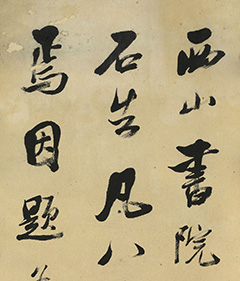 西山書院
石告凡八
焉因題